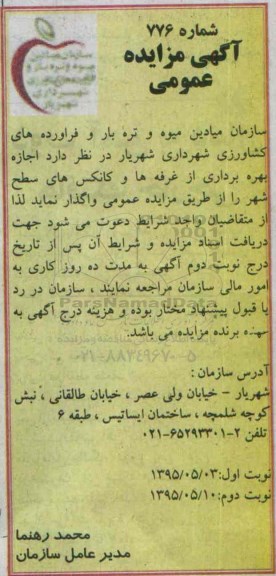 شماره ۷۷۶
آگهی مزایده
عمومی
سازمان میادین
میوه و تره بار و
شهرداری
شهریار
سازمان میادین میوه و تره بار و فراورده های
کشاورزی شهرداری شهریار در نظر دارد اجازه
بهره برداری از غرفه ها و کانکس های سطح
شهر را از طریق مزایده عمومی واگذار نماید لذا
از متقاضیان واجد شرایط دعوت می شود جهت
دریافت اسناد مزایده و شرایط آن پس از تاریخ
درج نوبت دوم آگهی به مدت ده روز کاری به
امور مالی سازمان مراجعه نمایند ، سازمان در رد
یا قبول پیشنهاد مختار بوده و هزینه درج آگهی به
عهده برنده مزایده می باشد.
ParsNamadData
۰۲۱-۸۸۳۴۹۶۷۰-۵
آدرس سازمان :
شهریار - خیابان ولی عصر ، خیابان طالقانی ، نبش
کوچه شلمچه ، ساختمان ایساتیس ، طبقه ۶
تلفن ۲-۶۵۲۹۳۳۰۱-۰۲۱
نوبت اول:۱۳۹۵/۰۵/۰۳
نوبت دوم:۱۳۹۵/۰۵/۱۰
محمد رهنما
مدیر عامل سازمان